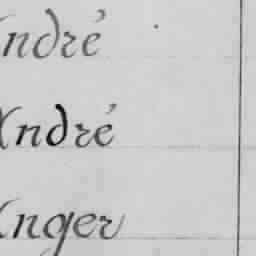 André
André
Anger